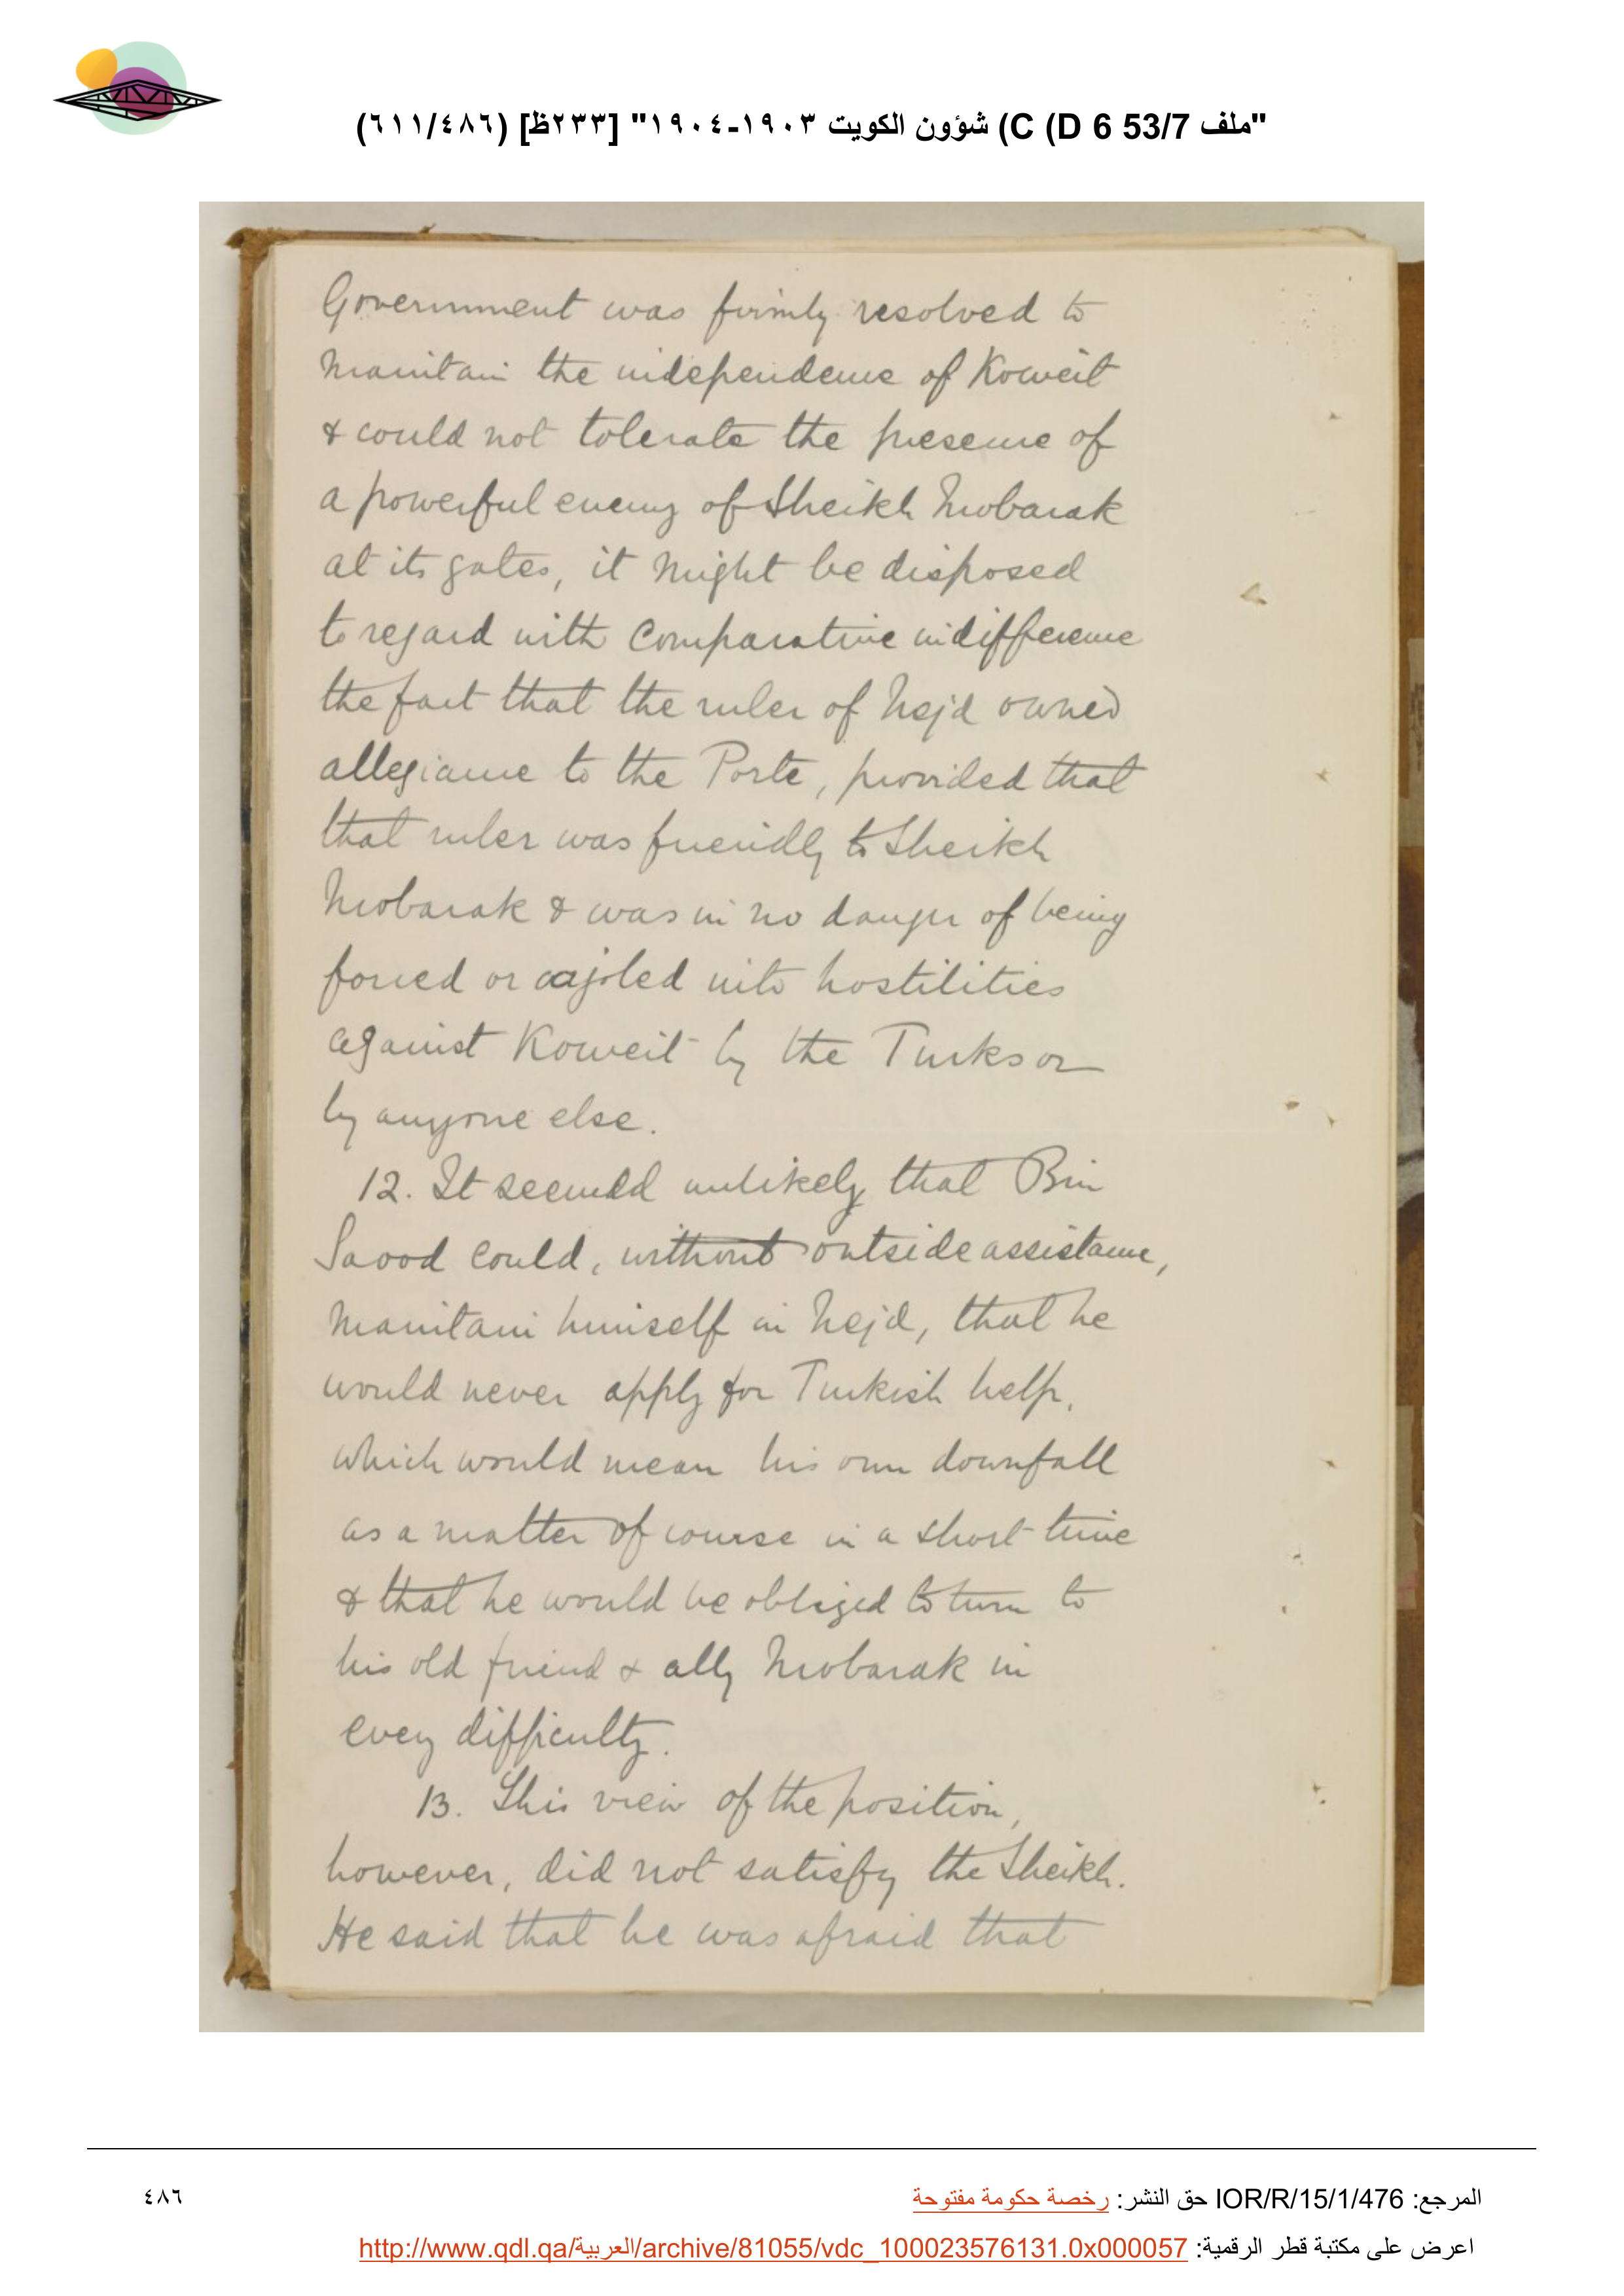 "ملف 53/7 D 6) C) شؤون الكويت ١٩٠٣-١٩٠٤" [٢٣٣ظ] (٦١١/٤٨٦)
Government was firmly resolved to
maintain the independence of Koweit
& could not tolerate the presence of
a powerful enemy of Sheikh Mobarak
at its gates, it might be disposed
to regard with comparative indifference
the fact that the ruler of Nejd owned
allegiance to the Porte, provided that
that ruler was friendly to Sheikh
Mobarak & was in no danger of being
forced or cajoled into hostilities
against Koweit by the Turks or
by anyone else.
12. It seemed unlikely that Bin
Saood could, without outside assistance,
maintain himself in Nejd, that he
would never apply for Turkish help,
which would mean his own downfall
as a matter of course in a short time
& that he would be obliged to turn to
his old friend & ally Mobarak in
every difficulty.
13. This view of the position,
however, did not satisfy the Sheikh.
He said that he was afraid that
المرجع: IOR/R/15/1/476 حق النشر: رخصة حكومة مفتوحة
٤٨٦
اعرض على مكتبة قطر الرقمية: http://www.qdl.qa/العربية/archive/81055/vdc_100023576131.0x000057